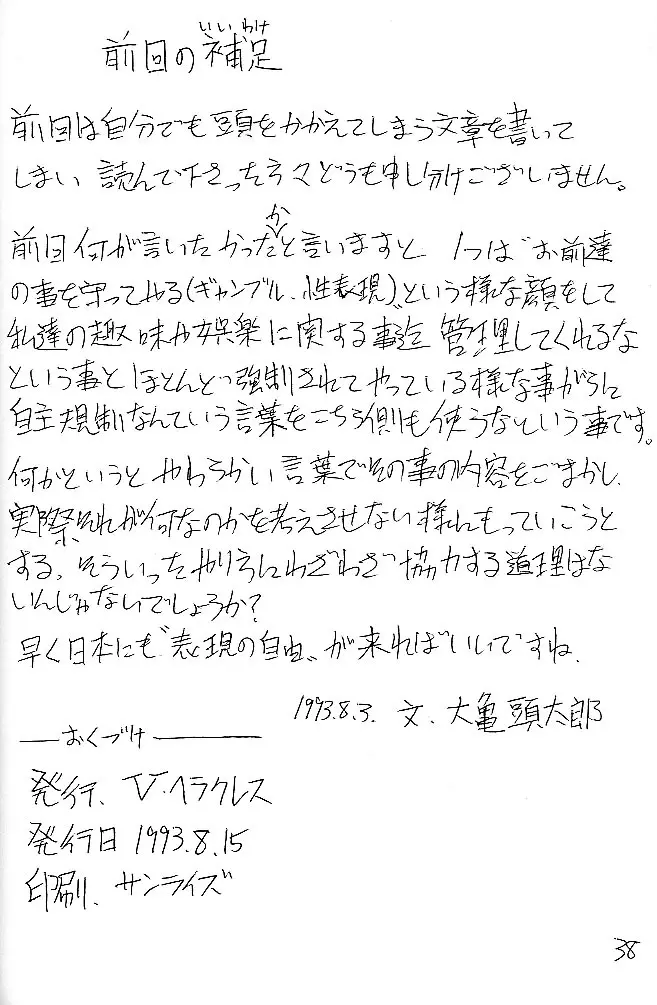 いいわけ
前回の補足
前回は自分でも頭をかかえてしまう文章を書いて
しまい 読んで下さった方々どうも申し分けございません。
か
前回何が言いたかったと言いますと、1つは“お前達
の事を守ってやる(ギャンブル、性表現)”という様な顔をして
私達の趣味や娯楽に関する事迄 管理してくれるな
という事と ほとんど強制されてやっている様な事がらに
自主規制なんていう言葉をこちら側も使うなという事です。
何かというと やわらかい言葉でその事の内容をごまかし、
実際それが何なのかを考えさせない様にもっていこうと
する、そういったやり方にわざわざ協力する道理はな
いんじゃないでしょうか?
早く日本にも“表現の自由”が来ればいいですね。
1993.8.3. 文、大亀頭太郎
おくづけ
発行、V.ヘラクレス
発行日 1993.8.15
印刷、サンライズ
38